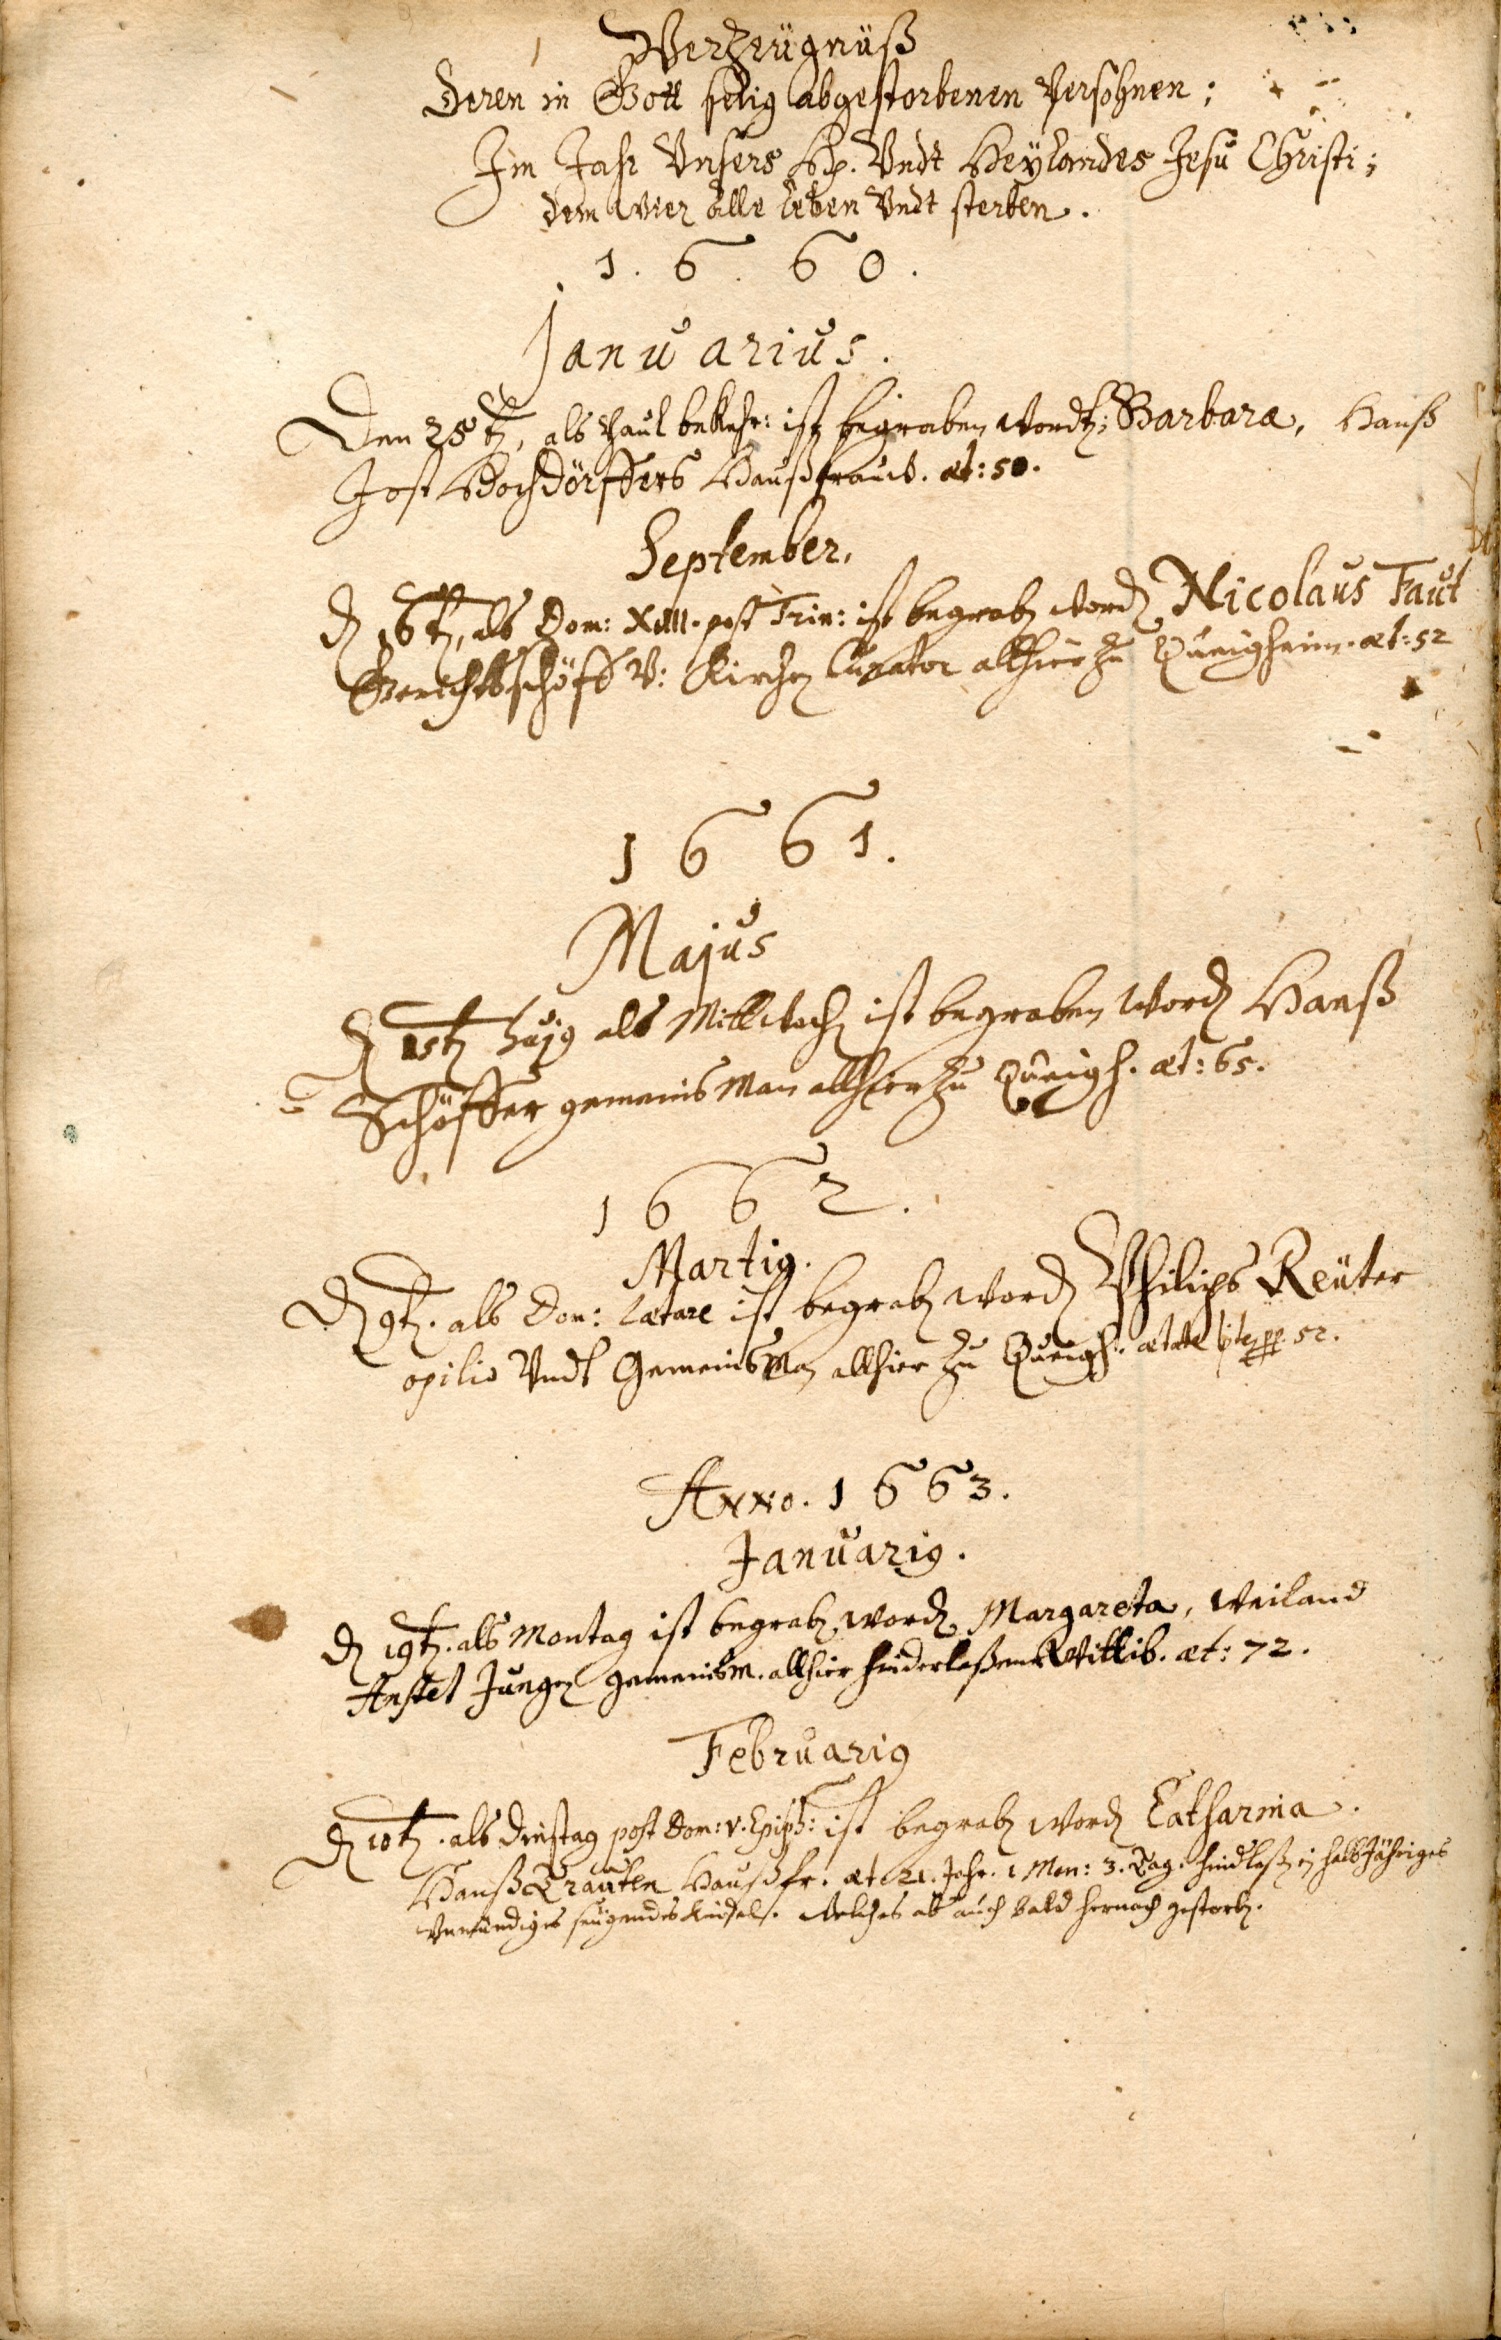 Verzeügnüß
deren in Gott selig abgestorbenen Persohnen;
Im Jahr Vnsers H. Vndt Heÿlandes Jesu Christi;
dem wier alle leben Vndt sterben.
1. 6. 6 0.
Januarius.
Den 25t, als Paul bekehr: ist begraben word; Barbara, Hanß
Jost Haußfraud. æt: 50.
September.
D 16t, als Dom: XIII. post Trin: ist begrab word Nicolaus Faut
Gerichtsschöff V: Kirchen Curator allhier zu Queigheim. æt: 52
1 6 6 1.
Majus
D 15t huj9 als Mittwoch ist begraben word Hanß
Schöffer gemeinsman allhier zu Queigh. æt: 65.
1 6 6 2.
Marti9.
D 9t. als Dom: Lætare ist begrab word Philips Reüter
opilio Vndt Gemeinsman allhier zu Queigh. ætate 52.
Anno. 1 6 6 3.
Januari9.
D 19t. als Montag ist begrab word Margareta, Weiland
Anstet Jungen gemeinsm. allhier hinderlaßene Wittib. æt: 72.
Februari9
D 10t. als Dinstag post Dom: V. Epiph: ist begrab word Catharina.
Hanß Trauten Haußfr. æt. 21. Jahr. 1 Mon: 3. Tag. halbJähriges
Vnmündiges seügendes Welches ab auch bald hernach gestorb.